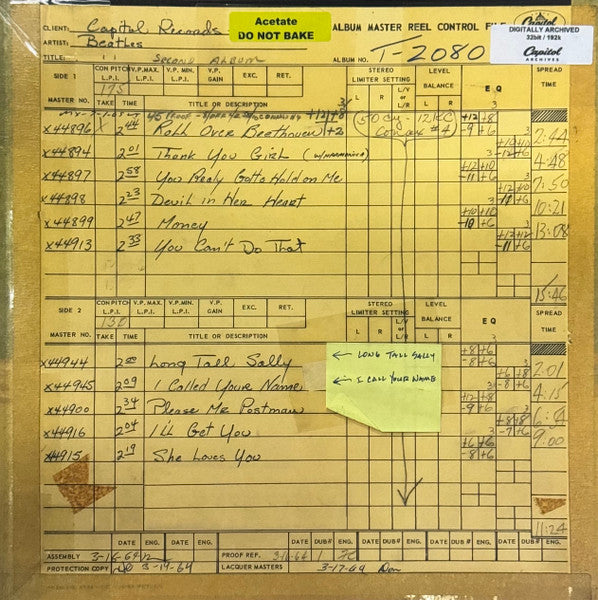 CLIENT: Capitol Records
Acetate
DO NOT BAKE
ALBUM MASTER REEL CONTROL FILE
Capitol
DIGITALLY ARCHIVED
32bit / 192k
Capitol
ARCHIVES
ARTIST: Beatles
TITLE: " SECOND ALBUM
ALBUM NO. T-2080
SIDE 1 CON PITCH L.P.I. V.P. MAX. L.P.I. V.P. MIN. L.P.I. V.P. GAIN EXC. RET. STEREO LIMITER SETTING L R L/V or R/V LEVEL BALANCE L R EQ SPREAD TIME
175
MASTER NO. TAKE TIME TITLE OR DESCRIPTION
X44896 2 44 Roll Over Beethoven +2 50 cy - 12KC +12 +8 -9 +6 2:44
X44894 2 01 Thank You Girl (W/HARMONICA) +10 +11 -12 +6 4:48
X44897 2 58 You Realy Gotta Hold on Me +12 +10 -11 +6 7:50
X44898 2 23 Devil in Her Heart +12 +10 -11 +6 10:21
X44899 2 47 Money +10 +10 -10 +6 13:08
X44913 2 33 You Can't Do That +12 +12 -11 +6
15:46
SIDE 2 CON PITCH L.P.I. V.P. MAX. L.P.I. V.P. MIN. L.P.I. V.P. GAIN EXC. RET. STEREO LIMITER SETTING L R L/V or R/V LEVEL BALANCE L R EQ SPREAD TIME
130
MASTER NO. TAKE TIME TITLE OR DESCRIPTION
X44944 2 00 Long Tall Sally ← LONG TALL SALLY +8 +6 -8 +6 2:01
X44945 2 09 I Called Your Name ← I CALL YOUR NAME +6 +8 -8 +6 4:15
X44900 2 34 Please Mr Postman +12 +8 -9 +6
X44916 2 04 I'll Get You +8 +8 -7 +6 9:00
X44915 2 19 She Loves You +6 +6 -8 +6
11:24
DATE ENG. DATE ENG. DATE ENG. DATE DUB# ENG. DATE DUB# ENG. DATE DUB# ENG.
ASSEMBLY 3-16-64 PROOF REF. 3-16-64 1
PROTECTION COPY 3-19-64 LACQUER MASTERS 3-17-64